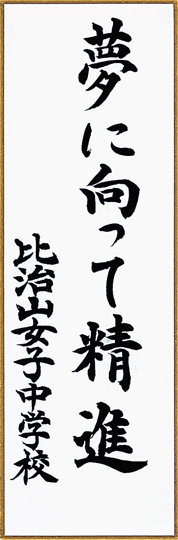 夢に向って精進
比治山女子中学校